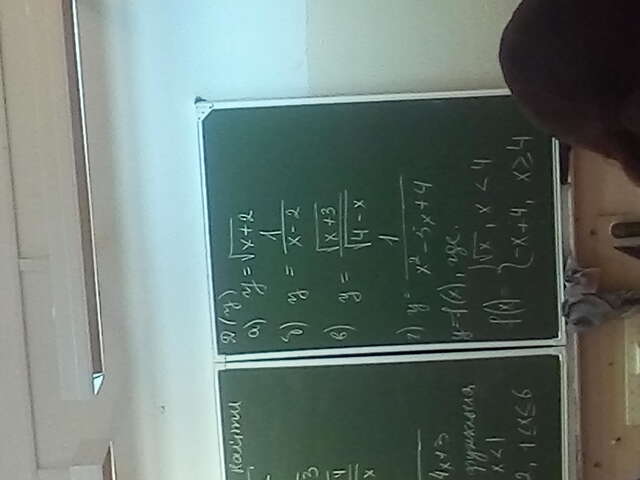 найти
3
4
x
4x+3
функция
x<1
2, 1≤x≤6
D(y)
а) y = √x+2
б) y = 1/(x-2)
в) y = √(x+3)/√(4-x)
г) y = 1/(x²-5x+4)
y=f(x), где.
f(x) = {√x, x < 4
-x+4, x≥4